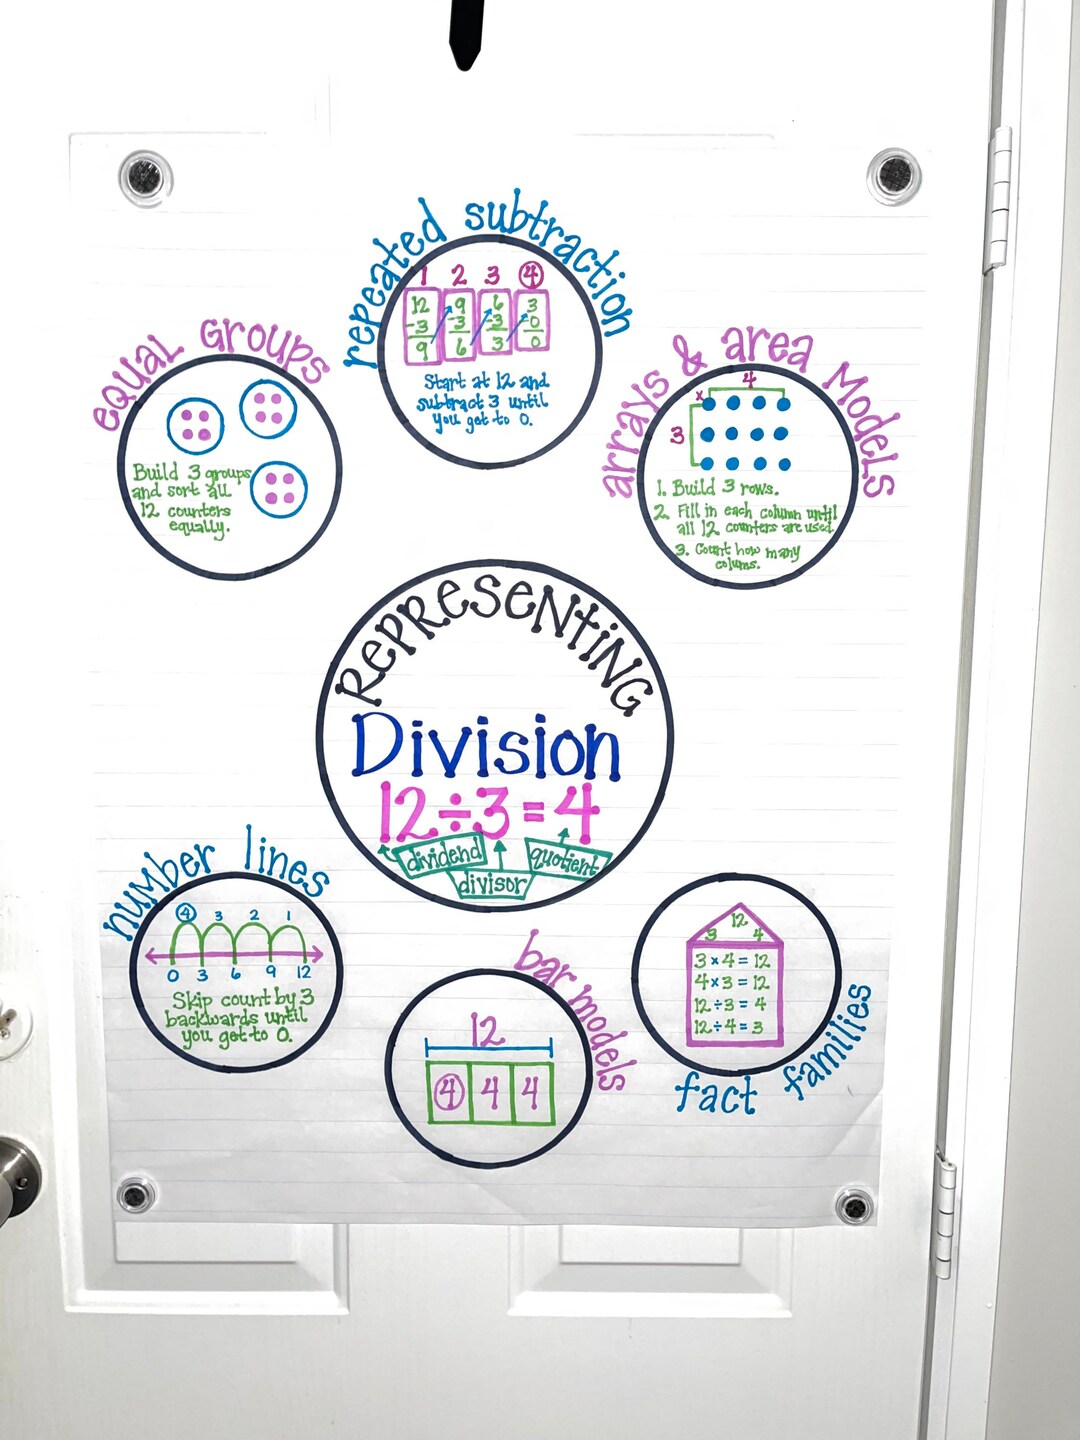 repeated subtraction
1 2 3 4
12 9 6 3
-3 -3 -3 -0
9 6 3 0
Start at 12 and
subtract 3 until
you get to 0.
equal Groups
Build 3 groups
and sort all
12 counters
equally.
arrays & area Models
4
x
3
1. Build 3 rows.
2. Fill in each column until
all 12 counters are used.
3. Count how many
colums.
RePReSeNTiNG
Division
12÷3=4
dividend
divisor
quotient
number lines
4 3 2 1
0 3 6 9 12
Skip count by 3
backwards until
you get to 0.
bar models
12
4 4 4
12
3 4
3×4=12
4×3=12
12÷3=4
12÷4=3
fact families